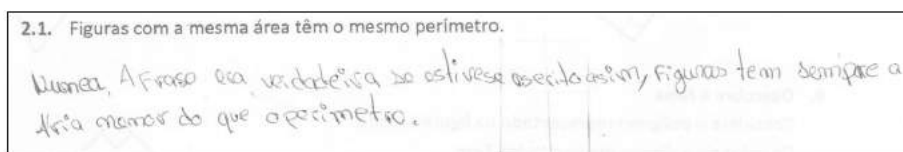 2.1. Figuras com a mesma área têm o mesmo perímetro.
Nunca, A Frase era verdadeira se estivese escrito asim, Figuras tem sempre a
Aria menor do que o perimetro.